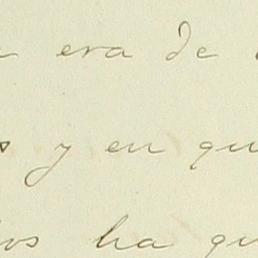 era de
s y en qu
los ha qu